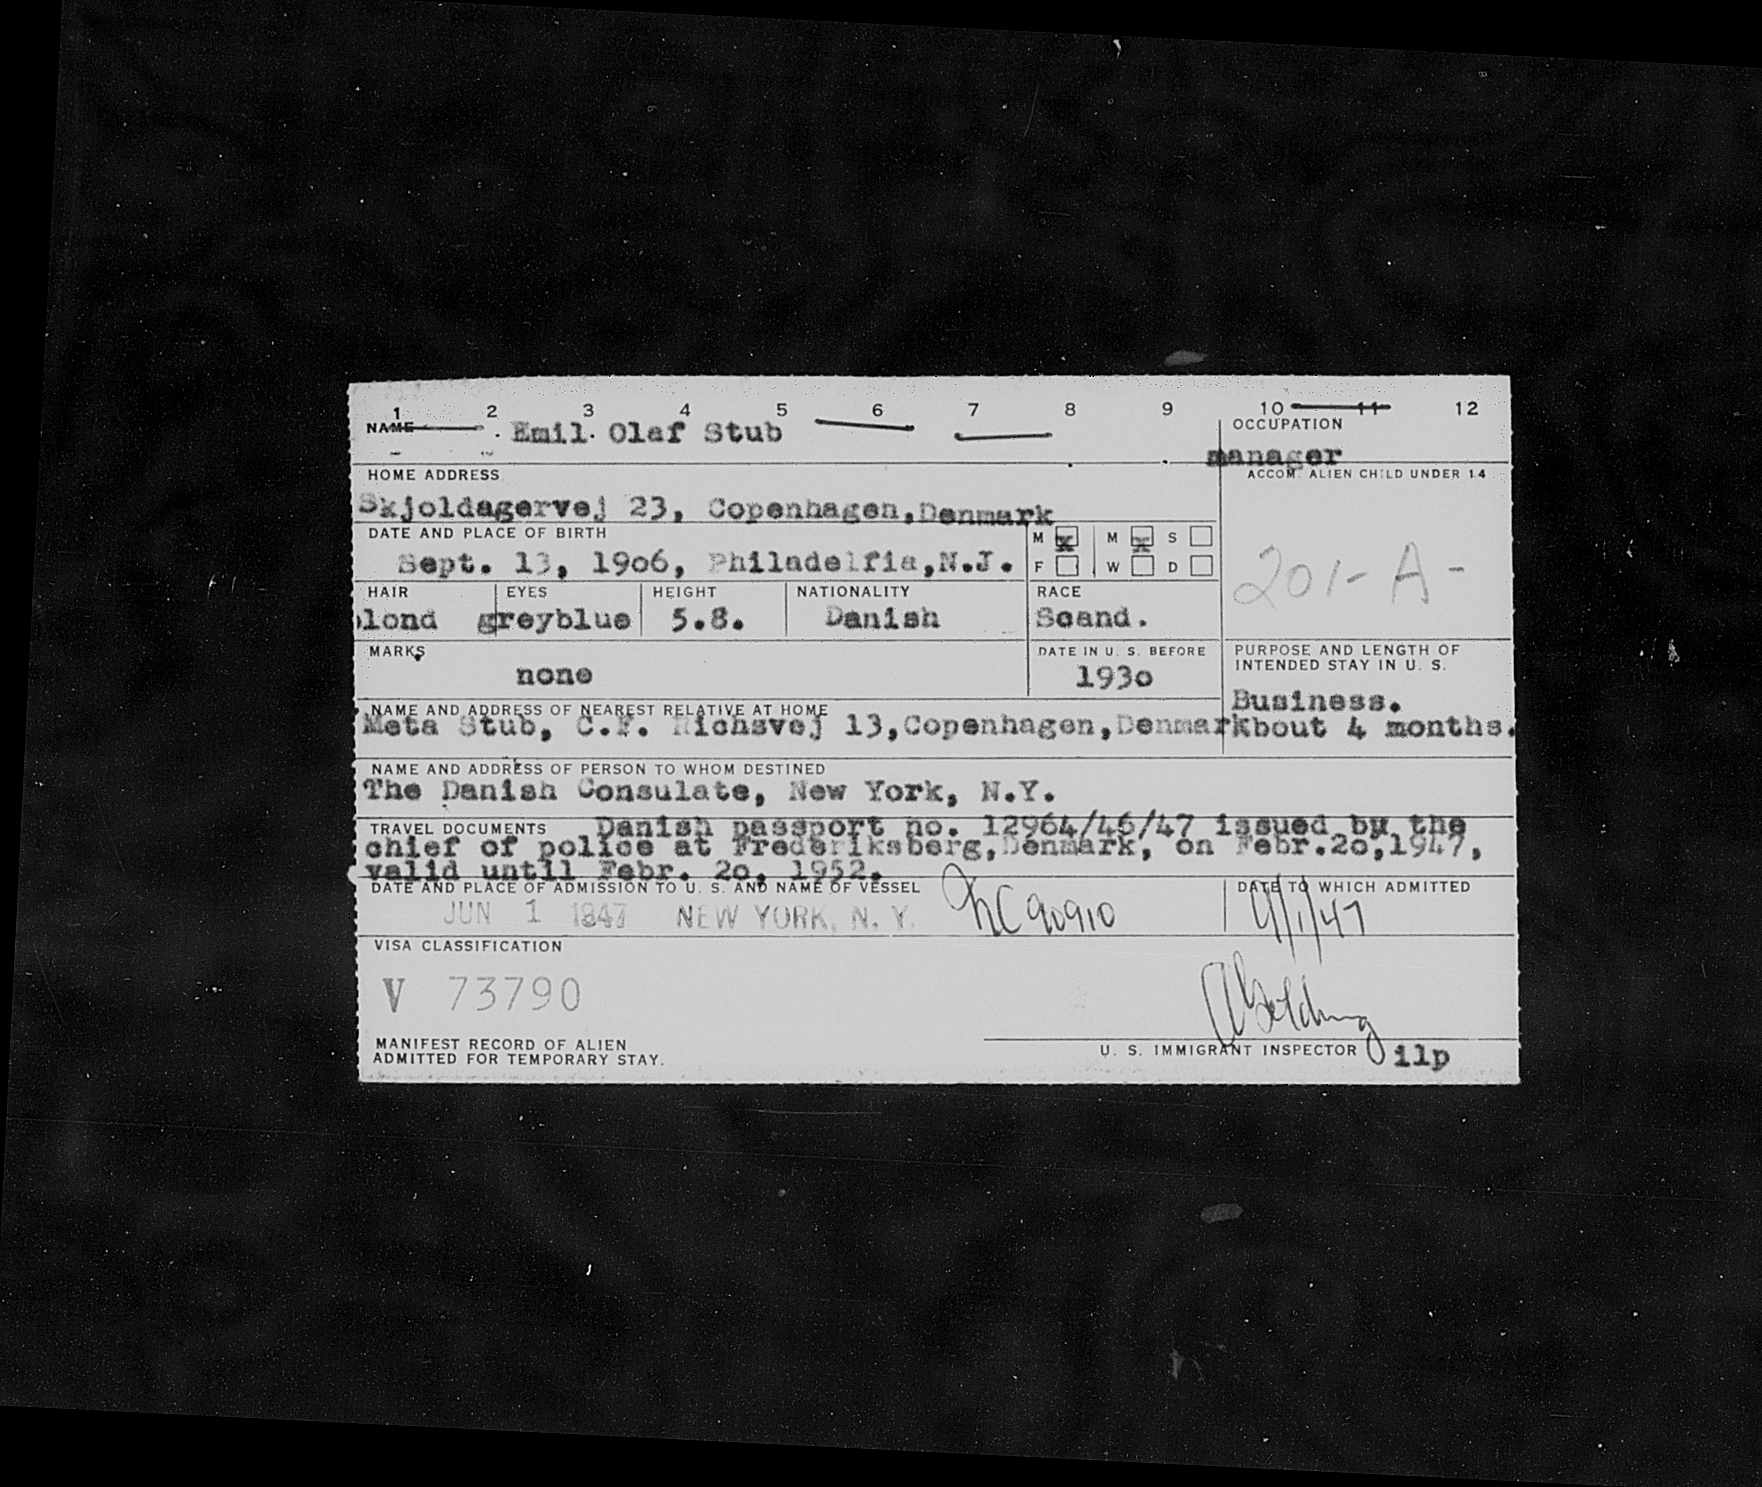 1 2 3 4 5 6 7 8 9 10 11 12
NAME Emil Olaf Stub
OCCUPATION
manager
HOME ADDRESS
Skjoldagervej 23, Copenhagen,Denmark
ACCOM. ALIEN CHILD UNDER 14
DATE AND PLACE OF BIRTH
Sept. 13, 19o6, Philadelfia,N.J.
M x M x S
F W D
201-A-
HAIR EYES HEIGHT NATIONALITY RACE
blond greyblue 5.8. Danish Scand.
MARKS
none
DATE IN U. S. BEFORE
193o
PURPOSE AND LENGTH OF
INTENDED STAY IN U. S.
Business.
About 4 months.
NAME AND ADDRESS OF NEAREST RELATIVE AT HOME
Meta Stub, C.F. Richsvej 13,Copenhagen,Denmark
NAME AND ADDRESS OF PERSON TO WHOM DESTINED
The Danish Consulate, New York, N.Y.
TRAVEL DOCUMENTS Danish passport no. 12964/46/47 issued by the
chief of police at Frederiksberg,Denmark, on Febr.2o,1947,
valid until Febr. 2o, 1952.
DATE AND PLACE OF ADMISSION TO U. S. AND NAME OF VESSEL
JUN 1 1947 NEW YORK, N. Y. NC 90910
DATE TO WHICH ADMITTED
9/1/47
VISA CLASSIFICATION
V 73790
MANIFEST RECORD OF ALIEN
ADMITTED FOR TEMPORARY STAY.
U. S. IMMIGRANT INSPECTOR
ilp